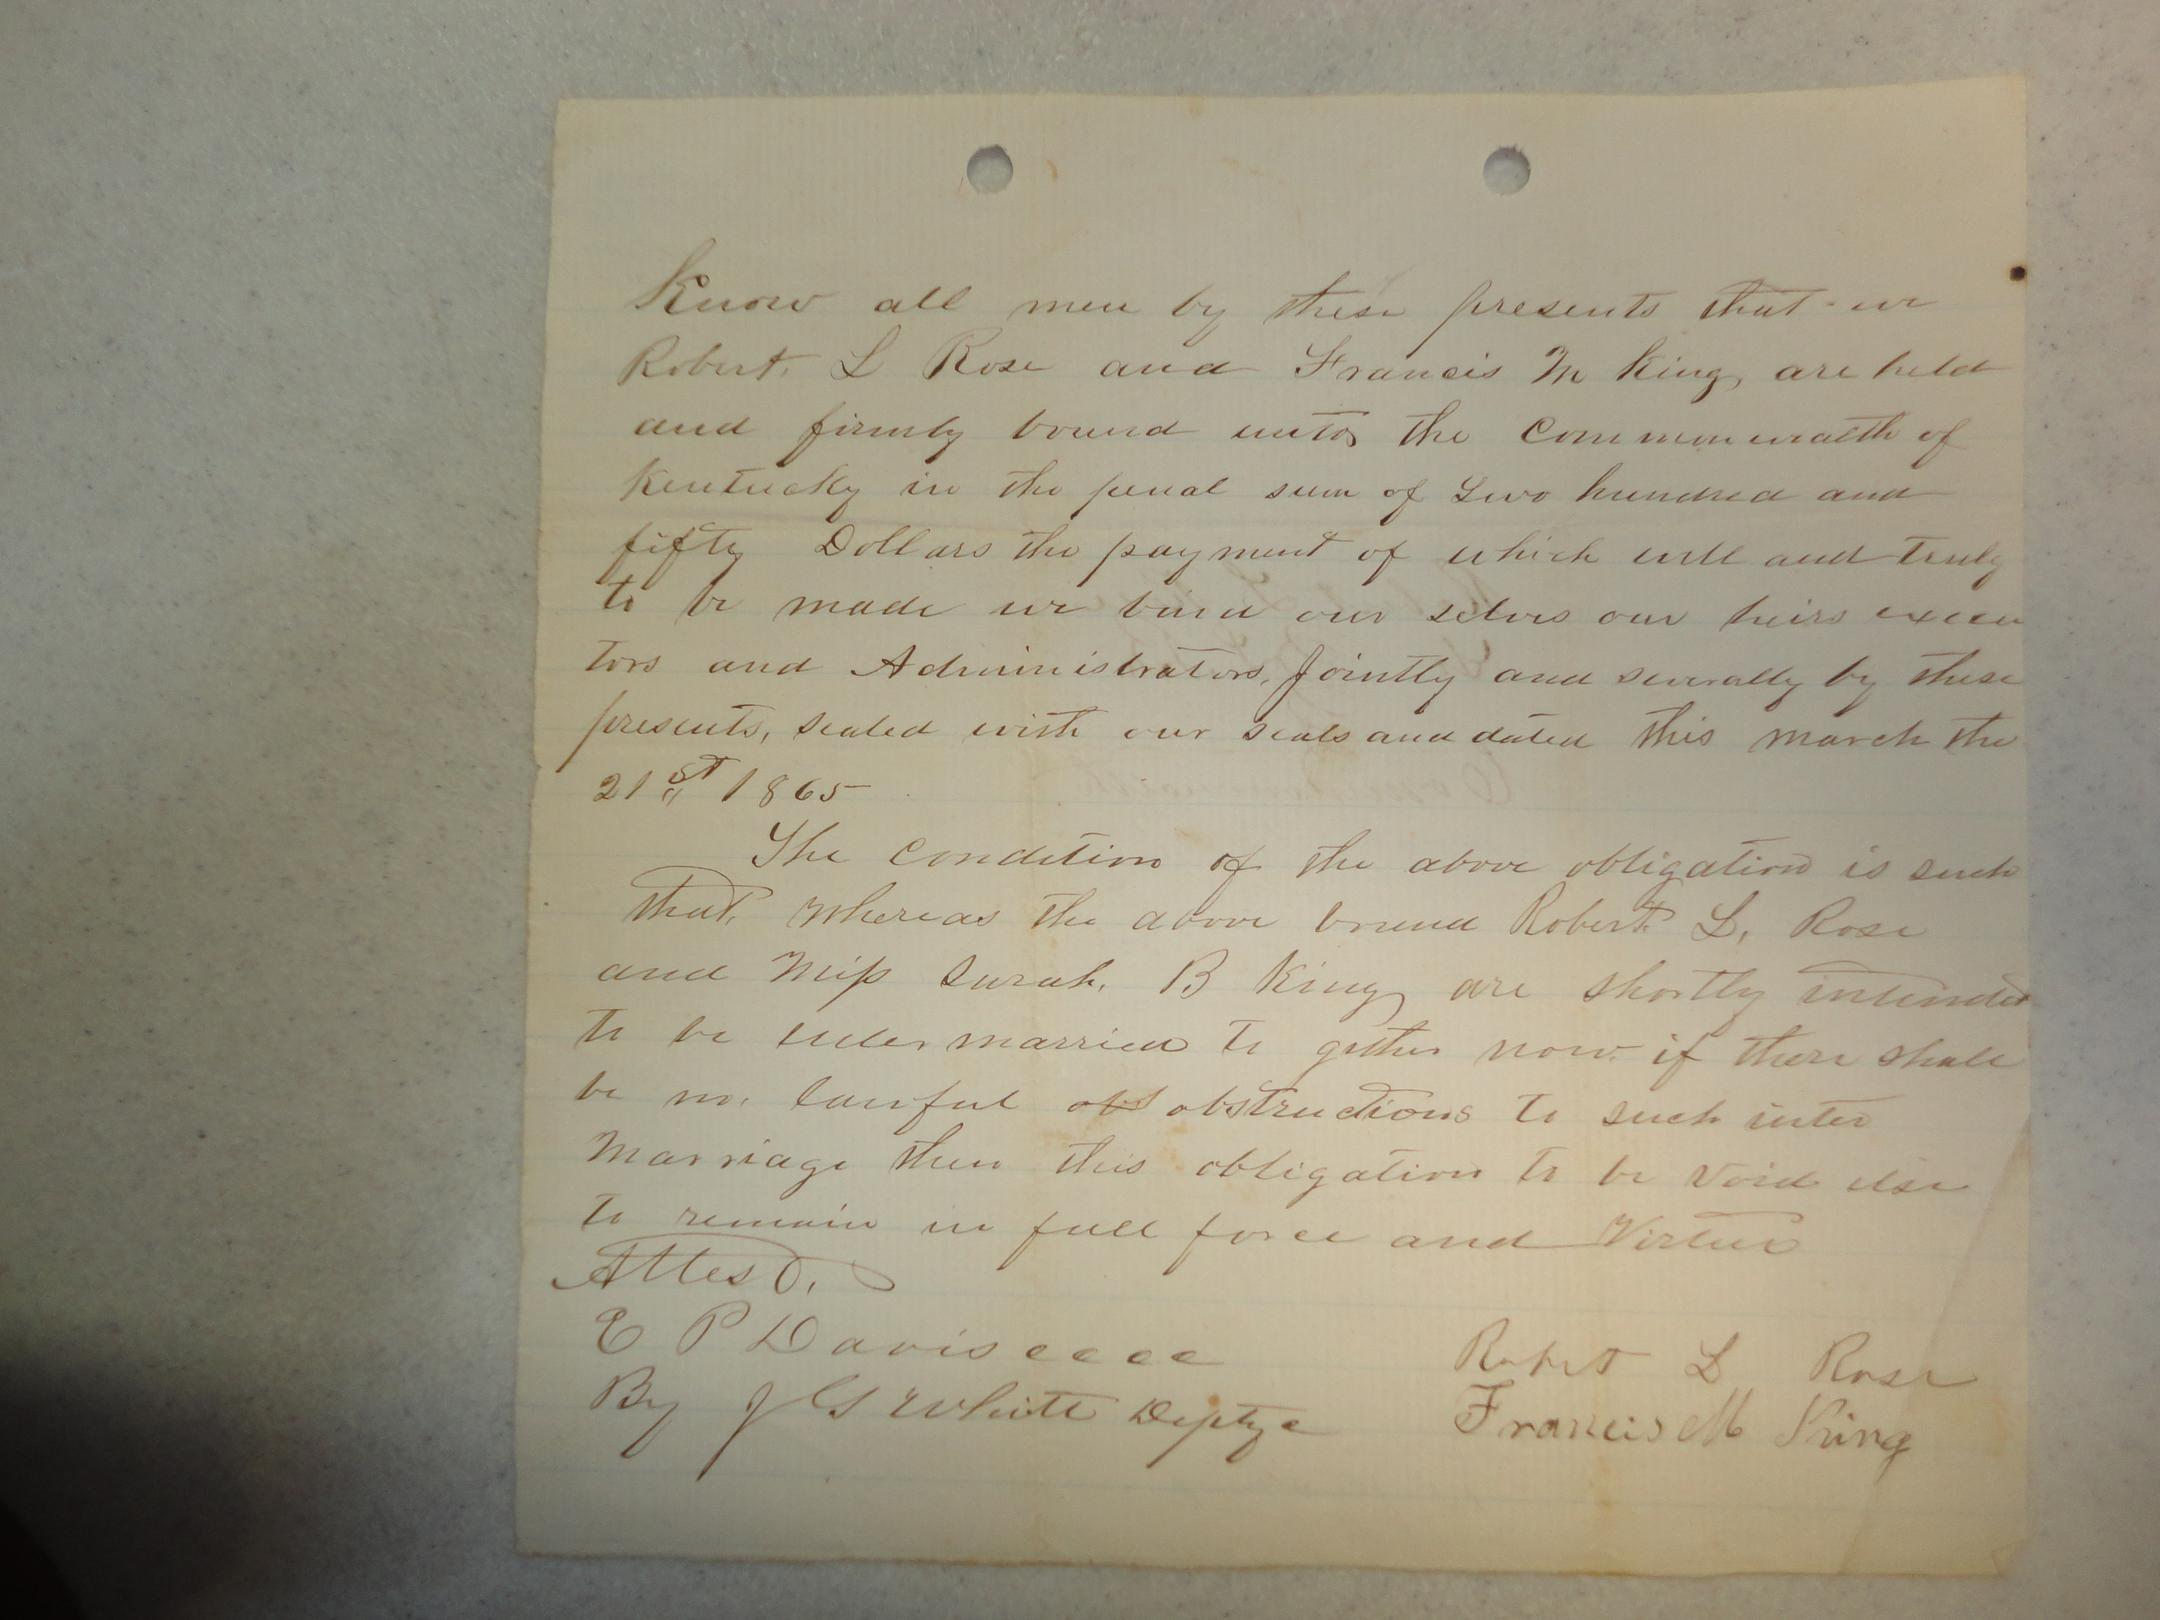 Know all men by these presents that we
Robert. L Rose and Francis M King, are held
and firmly bound unto the Commonwealth of
Kentucky in the penal sum of Two hundred and
fifty Dollars the payment of which well and truly
to be made we bind our selves our heirs execu
tors and Administrators, Jointly and severally by these
presents, sealed with our seals and dated this march the
21st 1865
The condition of the above obligation is such
that, whereas the above bound Robert L. Rose
and Miss Sarah. B King, are shortly intended
to be intermarried to gether now if there shall
be no. lawful obs obstructions to such inter
Marriage then this obligation to be void else
to remain in full force and Virtue
Attest.
E P Davis cccc
By J G White Deptyc
Robert L Rose
Francis M King